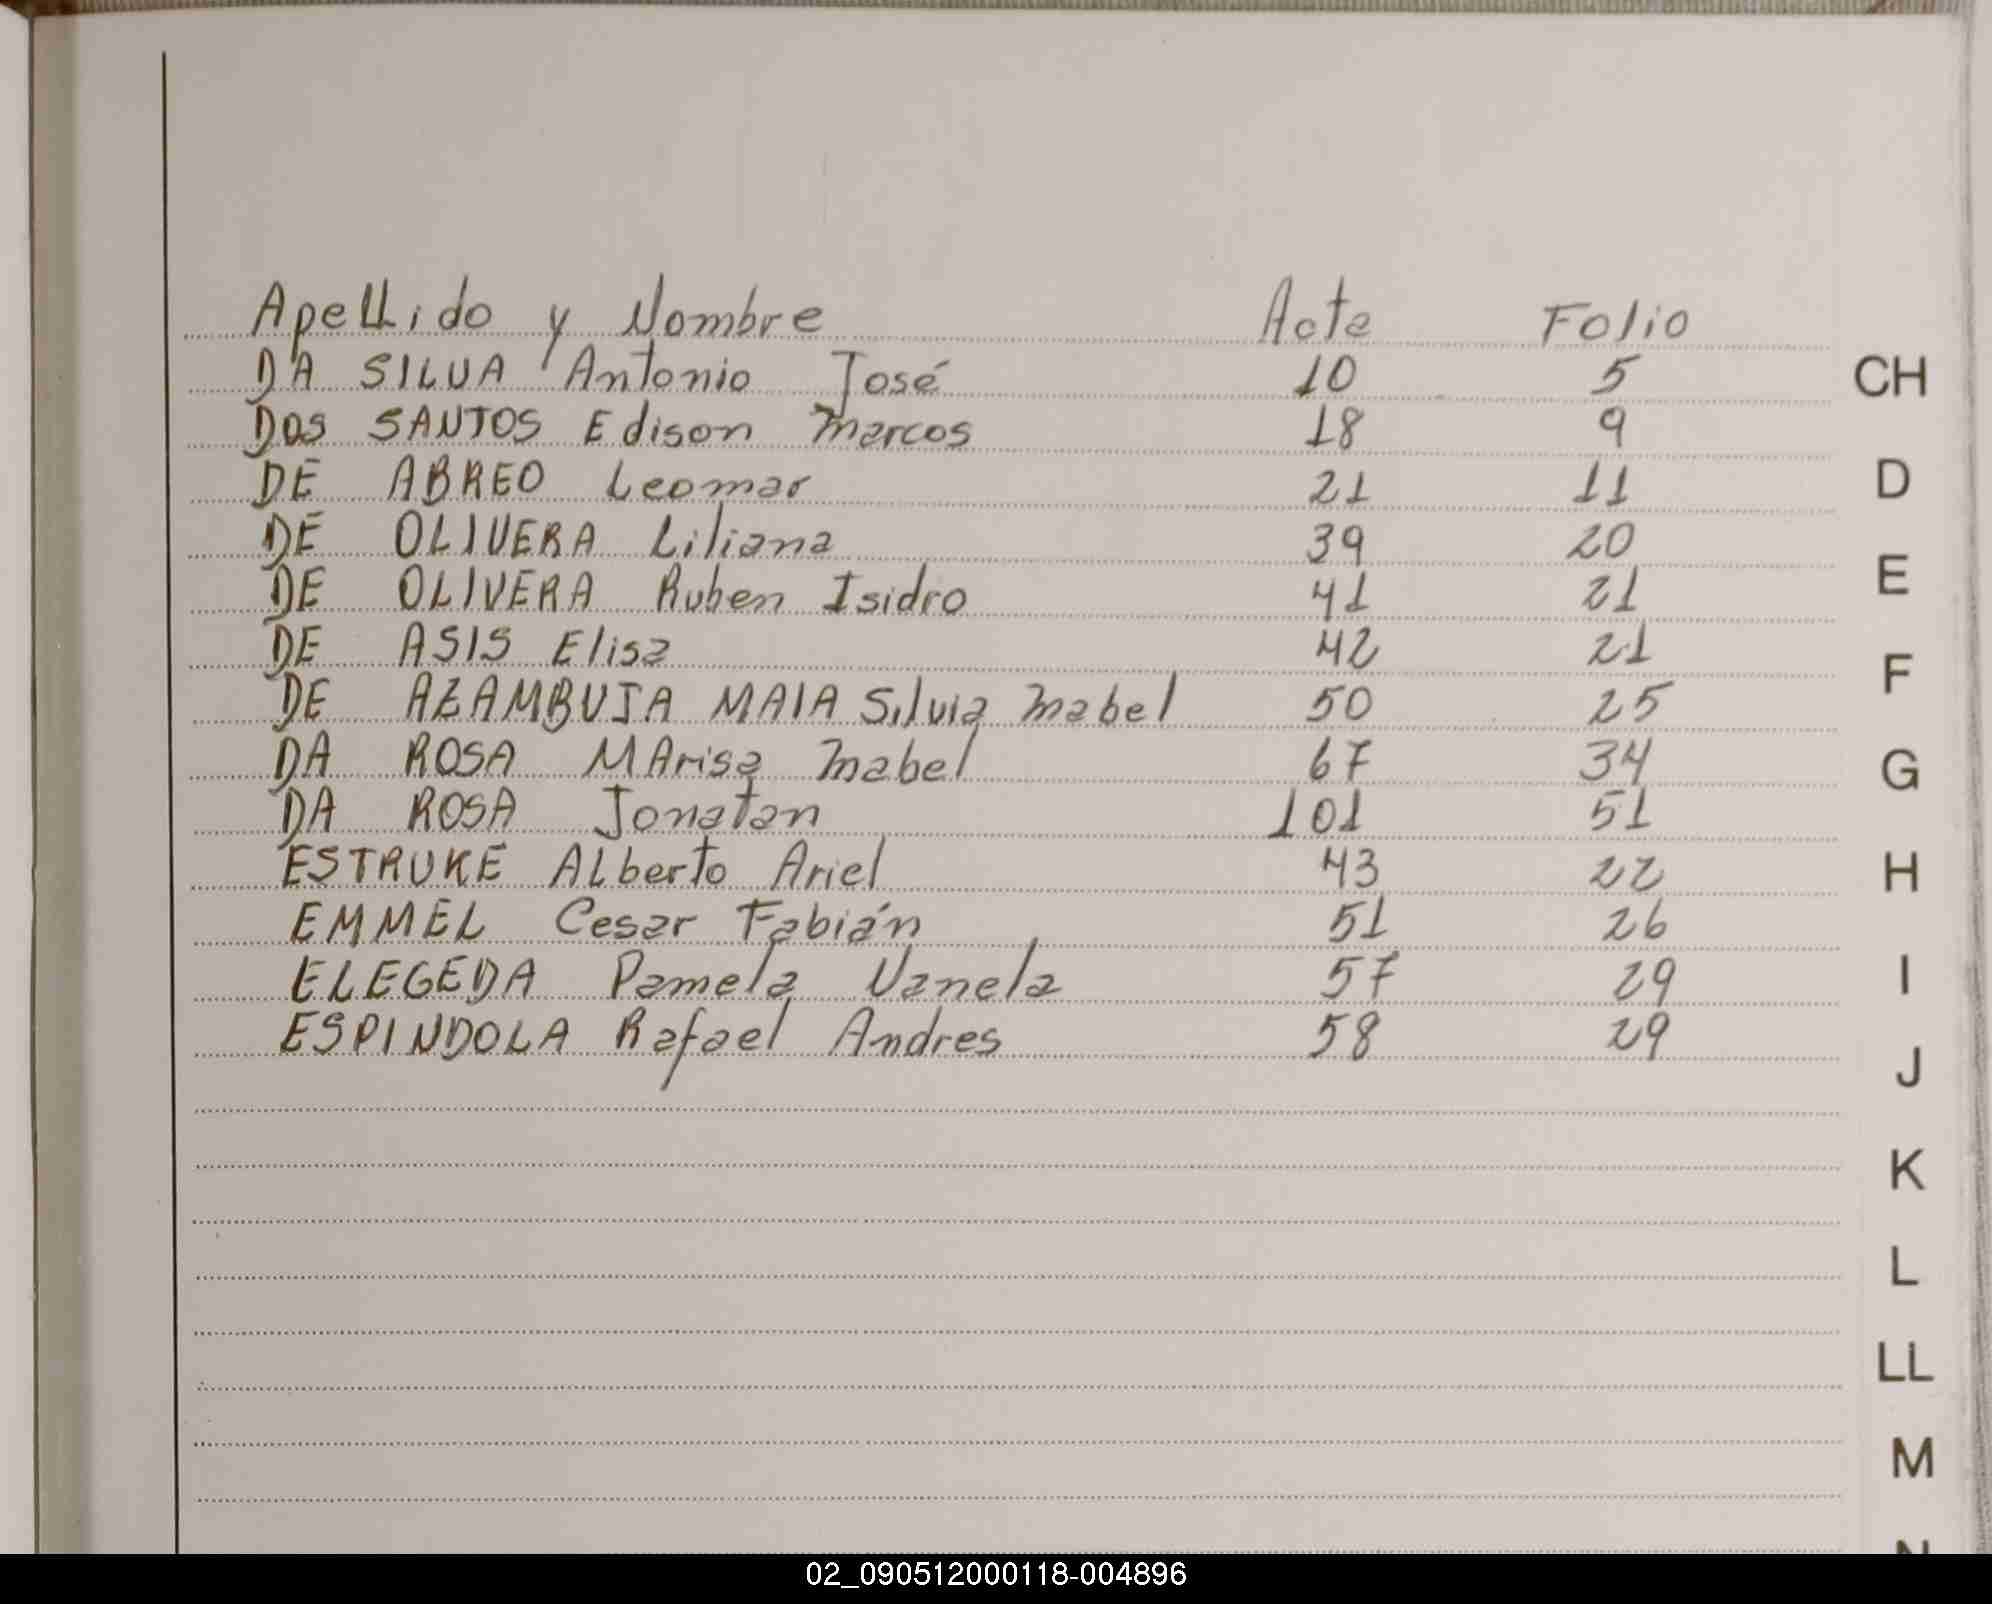 Apellido y Nombre Acta Folio
DA SILVA Antonio José 10 5
CH
DOS SANTOS Edison Marcos 18 9
DE ABREO Leomar 21 11
D
DE OLIVERA Liliana 39 20
DE OLIVERA Ruben Isidro 41 21
E
DE ASIS Elisa 42 21
F
DE AZAMBUJA MAIA Silvia Mabel 50 25
DA ROSA MArisa Mabel 67 34
G
DA ROSA Jonatan 101 51
ESTRUKE ALberto Ariel 43 22
H
EMMEL Cesar Fabián 51 26
ELEGEDA Pamela Vanela 57 29
I
ESPINDOLA Rafael Andres 58 29
J
K
L
LL
M
N
02_090512000118-004896